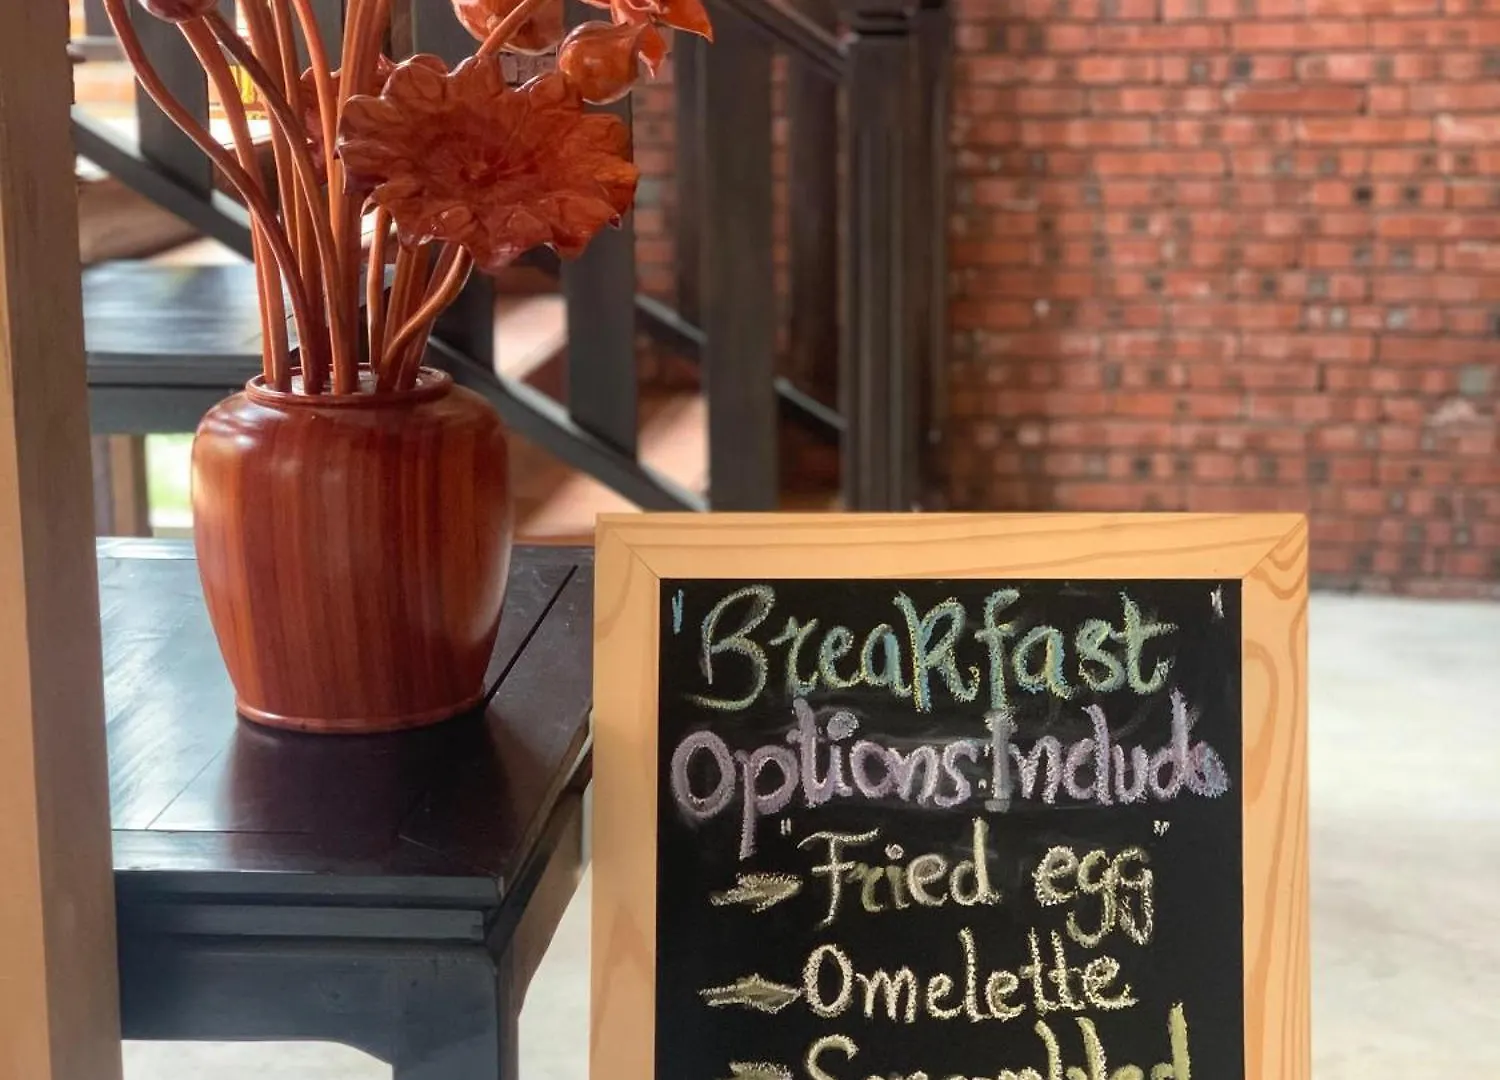 "Breakfast"
Options: Include
"Fried egg"
Omelette
Scrambled